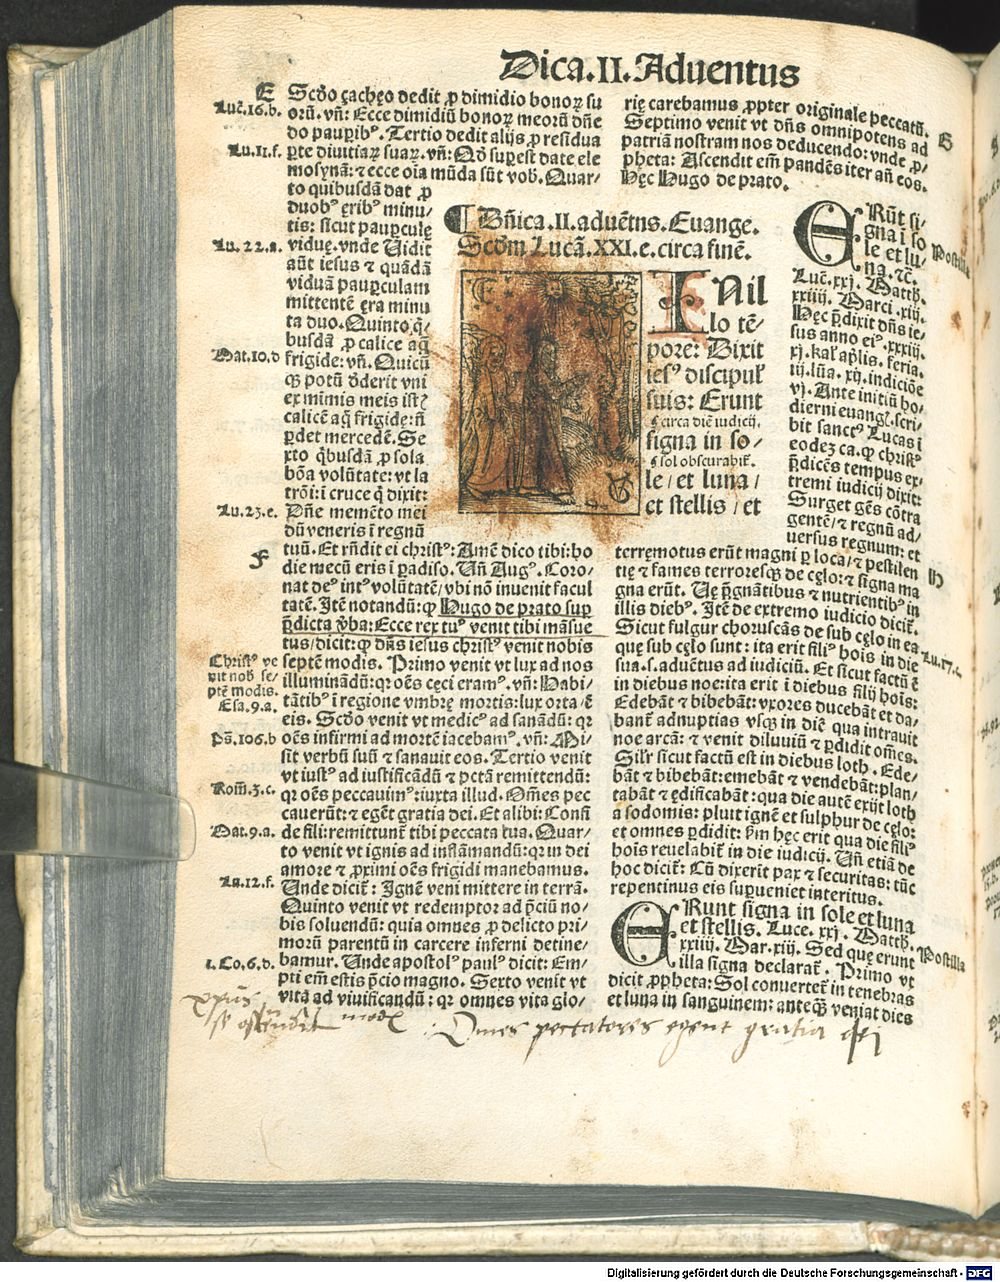 Dñica.II.Aduentus
E
Scd̃o çachęo dedit ꝓ dimidio bonoꝝ su
Luč.16.b. orũ. vñ: Ecce dimidiũ bonoꝝ meorũ dñe
do paupibꝰ. Tertio dedit alijs ꝓ residua
Lu.11.f. ꝑte diuitiaꝝ suaꝝ. vñ: Qð supest date ele
mosynã: ⁊ ecce oĩa mũda sũt vob̃. Quar⸗
to quibusdã dat ꝓ
duobꝰ ęribꝰ minu⸗
tis: sicut pauꝑculę
Lu.22.a. viduę. vnde Uidit
aũt iesus ⁊ quãdã
viduã pauꝑculam
mittentẽ ęra minu
ta duo. Quinto q̃⸗
busdã ꝓ calice aq̃
Mat.10.d frigide: vñ. Quicũ
qꝫ potũ ðderit vni
ex mimis meis istꝭ
calicẽ aq̃ frigidę: ñ
ꝑdet mercedẽ. Se
xto q̃busdã ꝓ sola
bõa volũtate: vt la
trõi: i cruce q̃ dixit:
Lu.23.e. Dñe memẽto mei
dũ veneris ĩ regnũ
F
tuũ. Et rñdit ei christꝰ: Amẽ dico tibi: ho
die mecũ eris ĩ ꝑadiso. Uñ Augꝰ. Coro⸗
nat deꝰ intꝰ volũtatẽ / vbi nõ inuenit facul
tatẽ. Itẽ notandũ: ꝙ Hugo de prato sup
p̃dicta v̾ba: Ecce rex tuꝰ venit tibi mãsue
tus / dicit: ꝙ dñs iesus christꝰ venit nobis
Christꝰ ve
nit nob se⸗
ptẽ modis.
Esa.9.a.
septẽ modis. Primo venit vt lux ad nos
illuminãdũ: qꝛ oẽs cęci eramꝰ. vñ: Habi⸗
tãtibꝰ ĩ regione vmbrę mortis: lux orta / ẽ
eis. Scd̃o venit vt medicꝰ ad sanãdũ: qꝛ
Ps̃.106.b oẽs infirmi ad mortẽ iacebamꝰ. vñ: Mi⸗
sit verbũ suũ ⁊ sanauit eos. Tertio venit
vt iustꝰ ad iustificãdũ ⁊ pctã remittendũ:
Rom̃.3.c. qꝛ oẽs peccauimꝰ: iuxta illud. Om̃es pec
cauerũt: ⁊ egẽt gratia dei. Et alibi: Confi
Mat.9.a. de fili: remittunt̃ tibi peccata tua. Quar⸗
to venit vt ignis ad inflãmandũ: qꝛ in dei
amore ⁊ ꝓximi oẽs frigidi manebamus.
Lu.12.f. Unde dicit̃: Ignẽ veni mittere in terrã.
Quinto venit vt redemptor ad p̃ciũ no⸗
bis soluendũ: quia omnes ꝓ delicto pri⸗
morũ parentũ in carcere inferni detine⸗
1.Co.6.d. bamur. Unde apostolꝰ paulꝰ dicit: Em⸗
pti em̃ estis p̃cio magno. Sexto venit vt
vita ad viuificandũ: qꝛ omnes vita glo⸗
rię carebamus ꝓpter originale peccatũ.
Septimo venit vt dñs omnipotens ad
G
patriã nostram nos deducendo: vnde ꝓ⸗
pheta: Ascendit em̃ pandẽs iter añ eos.
Hęc Hugo de prato.
¶ Dñica.II.aduẽtus.Euange.
Scdm̃ Lucã.XXI.c.circa finẽ.
IN il
lo tẽ⸗
pore: Dixit
iesꝰ discipul̃
suis: Erunt
ꝭ circa diẽ iudicij.
signa in so⸗
ꝭ sol obscurabit̃.
le / et luna /
et stellis / et
Postilla
ERũt si⸗
gna ĩ so
le et lu⸗
na. ⁊c̃.
Luč.xxj. Matth̃.
xxiiij. Marci.xiij.
Hęc p̃dixit dñs ie⸗
sus anno eiꝰ.xxxiij.
xj. kal̃ ap̃lis. feria.
iij. lũa.xij. indiciõe
vj. Ante initiũ ho⸗
dierni euangl̃. scri⸗
bit sanctꝰ Lucas ĩ
eodeꝫ ca. ꝙ christꝰ
p̃dicẽs tempus ex⸗
tremi iudicij dixit:
Surget gẽs cõtra
gentẽ / ⁊ regnũ ad⸗
uersus regnum: et
terremotus erũt magni ꝑ loca / ⁊ pestilen
H
tię ⁊ fames terroresqꝫ de cęlo: ⁊ signa ma
gna erũt. Uę p̃gnãtibus ⁊ nutrientibꝰ in
illis diebꝰ. Itẽ de extremo iudicio dicit̃.
Sicut fulgur choruscãs de sub cęlo in ea
Lu.17.c.
quę sub cęlo sunt: ita erit filiꝰ hoĩs in die
sua.s. aduẽtus ad iudiciũ. Et sicut factũ ẽ
in diebus noe: ita erit ĩ diebus filij hoĩs:
Edebãt ⁊ bibebãt: vxores ducebãt et da⸗
bant̃ ad nuptias vsqꝫ in diẽ qua intrauit
noe arcã: ⁊ venit diluuiũ ⁊ ꝑdidit om̃es.
Sil̃r sicut factũ est in diebus loth. Ede⸗
bãt ⁊ bibebãt: emebãt ⁊ vendebãt: plan⸗
tabãt ⁊ ędificabãt: qua die autẽ exijt loth
a sodomis: pluit ignẽ et sulphur de cęlo:
et omnes ꝑdidit: ẜm hęc erit qua die filiꝰ
hoĩs reuelabit̃ in die iudicij. Uñ etiã de
hoc dicit̃: Cũ dixerit pax ⁊ securitas: tũc
repentinus eis supueniet interitus.
ERunt signa in sole et luna
et stellis. Luce.xxj. Matth̃.
xxiiij. Mar.xiij. Sed quę erunt
Postilla
illa signa declarat̃. Primo vt
dicit ꝓpheta: Sol conuertet̃ in tenebras
et luna in sanguinem: anteqꝫ̃ veniat dies
Omnes peccatores egent gratia dei
Digitalisierung gefördert durch die Deutsche Forschungsgemeinschaft - DFG